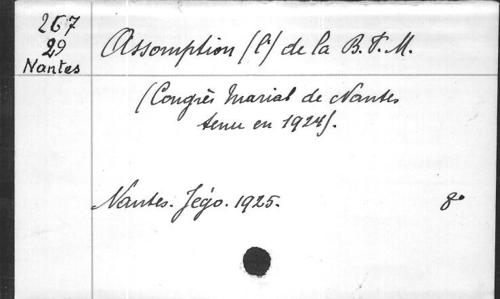 267
29
Nantes
Assomption (l') de la B.V.M.
(Congrès Marial de Nantes
tenu en 1924).
Nantes. Jégo. 1925. 8°